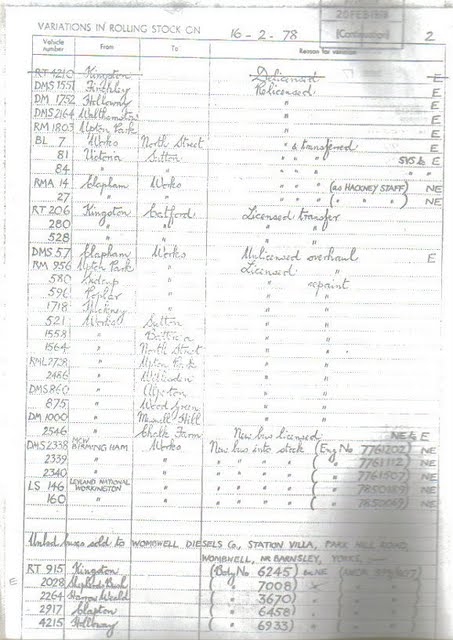 VARIATIONS IN ROLLING STOCK ON 16-2-78 (Continuation) 2
20 FEB 1978
Vehicle number From To Reason for variation
RT 4210 Kingston Delicensed E
DMS 1551 Finchley Relicensed E
DM 1752 Holloway " E
DMS 2164 Walthamstow " E
RM 1803 Upton Park " E
BL 7 Works North Street " & transferred E
81 Victoria Sutton " " " SYS & E
84 " " " " " " "
RMA 14 Clapham Works " " " (as HACKNEY STAFF) NE
27 " " " " " ( " " " ) NE
RT 206 Kingston Catford Licensed transfer
280 " " " "
528 " " " "
DMS 57 Clapham Works Unlicensed overhaul E
RM 956 Upton Park " Licensed "
580 Sidcup " " repaint
596 Poplar " " "
1718 Hackney " " "
521 Works Sutton " "
1558 " Battersea " "
1564 " North Street " "
RML 2728 " Upton Park " "
2486 " Willesden " "
DMS 860 " " "
875 " Wood Green " "
DM 1000 " Muswell Hill " "
2546 " Chalk Farm New bus licensed NE & E
DMS 2338 MCW BIRMINGHAM Works New bus into stock (Eng No 7761202) NE
2339 " " " " " " ( " 7761112) NE
2340 " " " " " " ( " 7761507) NE
LS 146 LEYLAND NATIONAL WORKINGTON " " " " " ( " 7850189) NE
160 " " " " " " ( " 7850069) NE
Unlicd buses sold to WOMBWELL DIESELS Co., STATION VILLA, PARK HILL ROAD,
WOMBWELL, NR BARNSLEY, YORKS,
RT 915 Kingston (Body No 6245) NE
E 2028 Shepherds Bush ( " 7008)
2264 Harrow Weald ( " 3670)
2917 Clapton ( " 6458)
4215 Holloway ( " 6933)